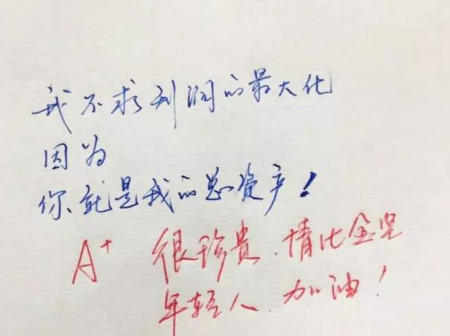 我不求利润的最大化
因为
你就是我的总资产！
A+ 很珍贵.情比金坚
年轻人.加油！